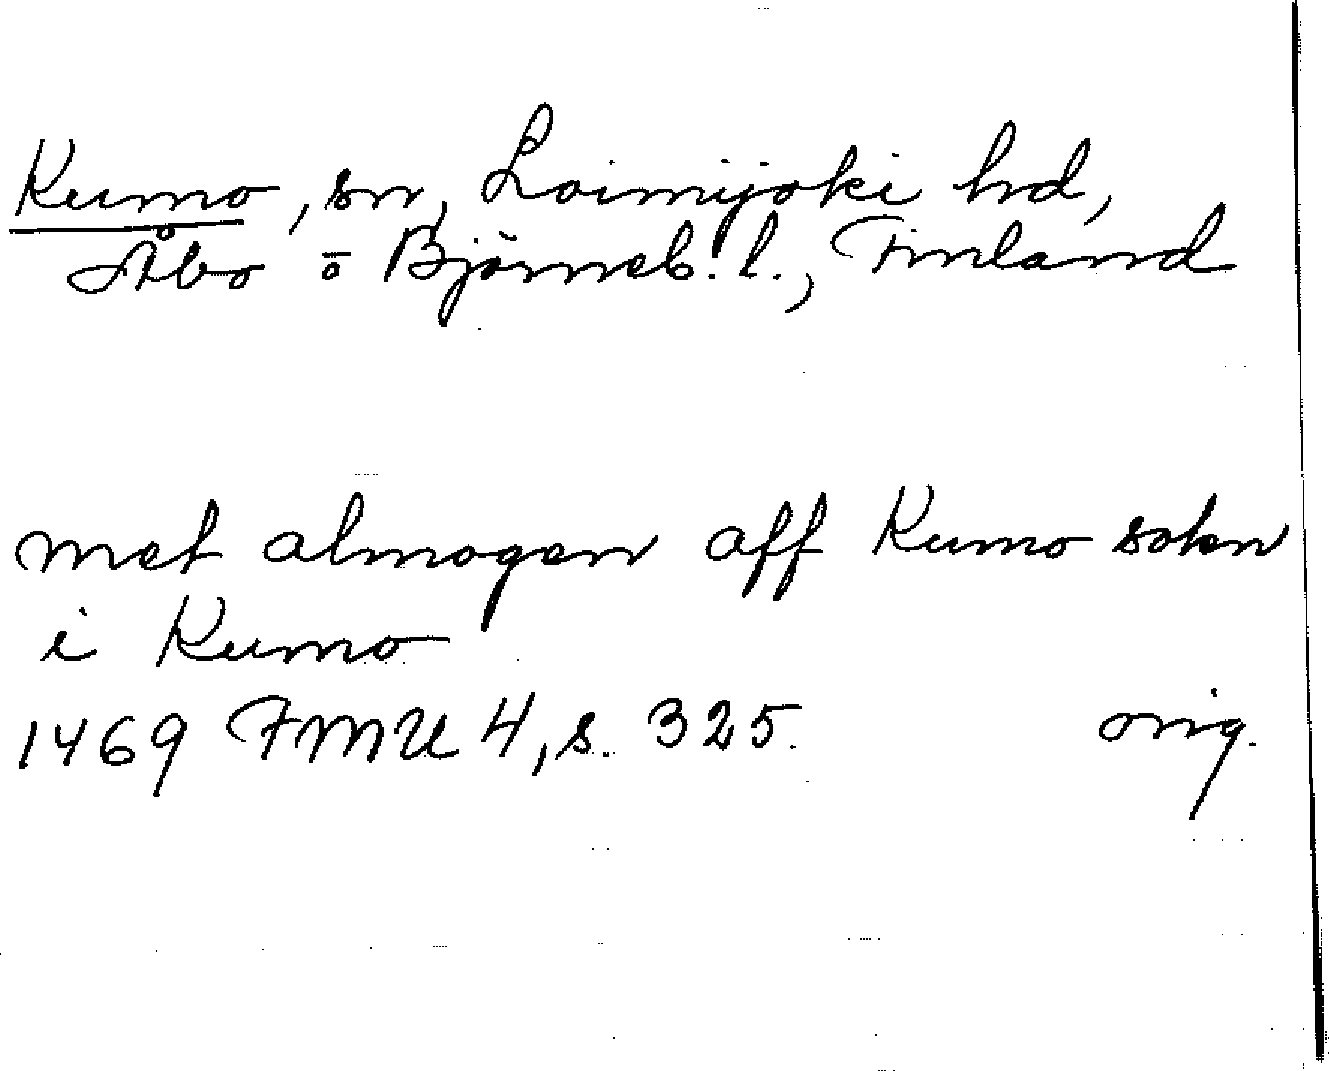 Kumo, sn, Loimijoki hd,
Åbo o Björneb. l., Finland
met almogen aff Kumo sokn
i Kumo
1469 FMU 4, s. 325. orig.